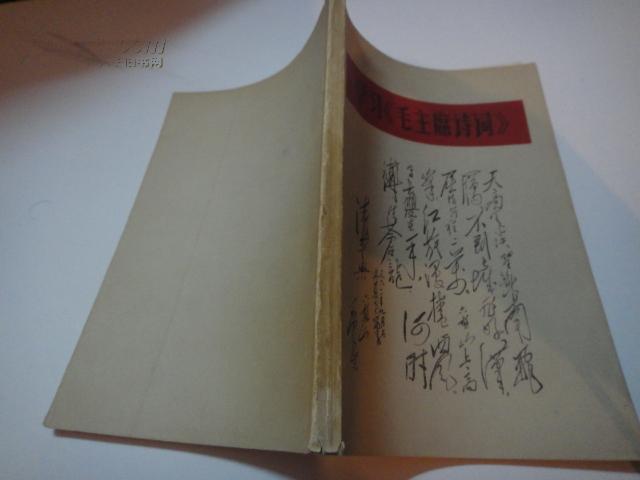 学习《毛主席诗词》
天高云淡望断南飛雁
不到长城非好漢
屈指行程二万六盘山上高
峯红旗漫捲西风
今日长缨在手何时
缚住苍龙
清平乐
六盘山
毛泽东
旧书网